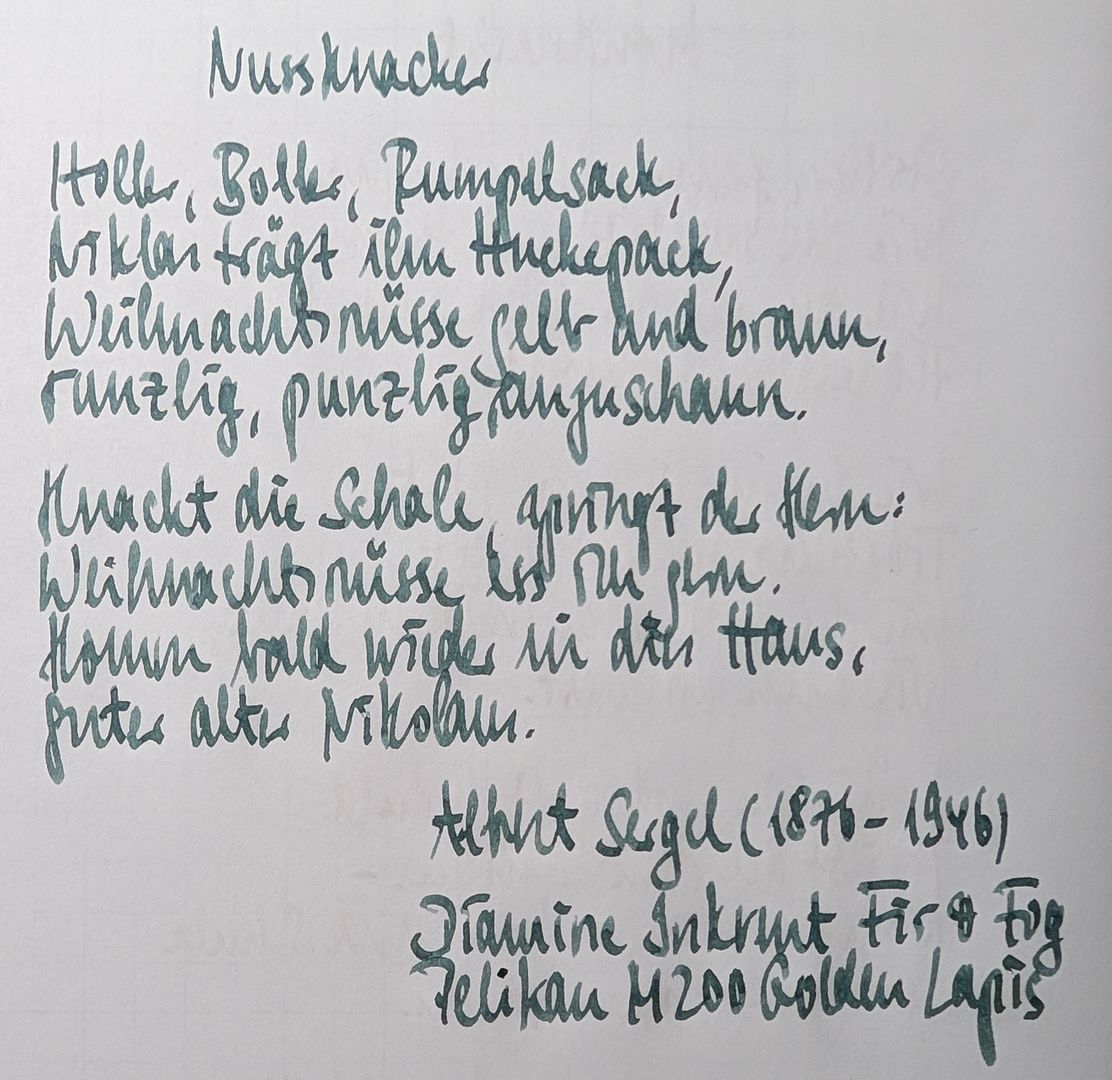 Nussknacker
Holler, Boller, Rumpelsack,
Niklas trägt ihn Huckepack,
Weihnachtsnüsse gelb und braun,
runzlig, punzlig anzuschaun.
Knackt die Schale, springt der Kern:
Weihnachtsnüsse ess ich gern.
Komm bald wieder in dies Haus,
guter alter Nikolaus.
Albert Sergel (1876-1946)
Diamine Inkvent Fir & Fog
Pelikan M200 Golden Lapis